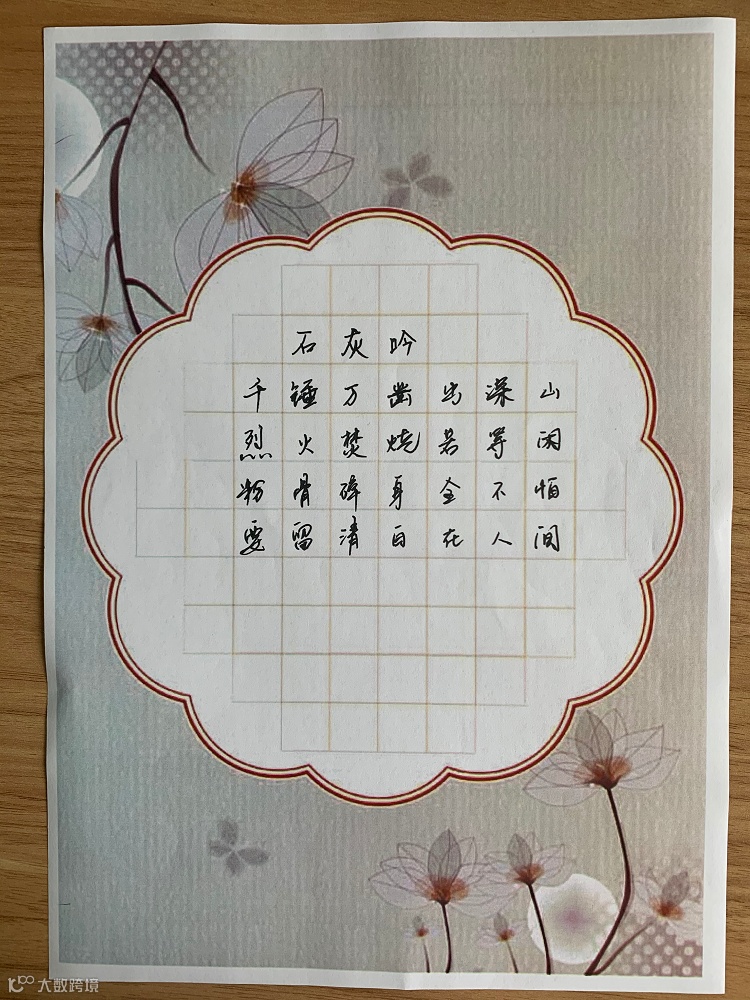 石灰吟
千锤万凿出深山
烈火焚烧若等闲
粉骨碎身全不怕
要留清白在人间
大数跨境